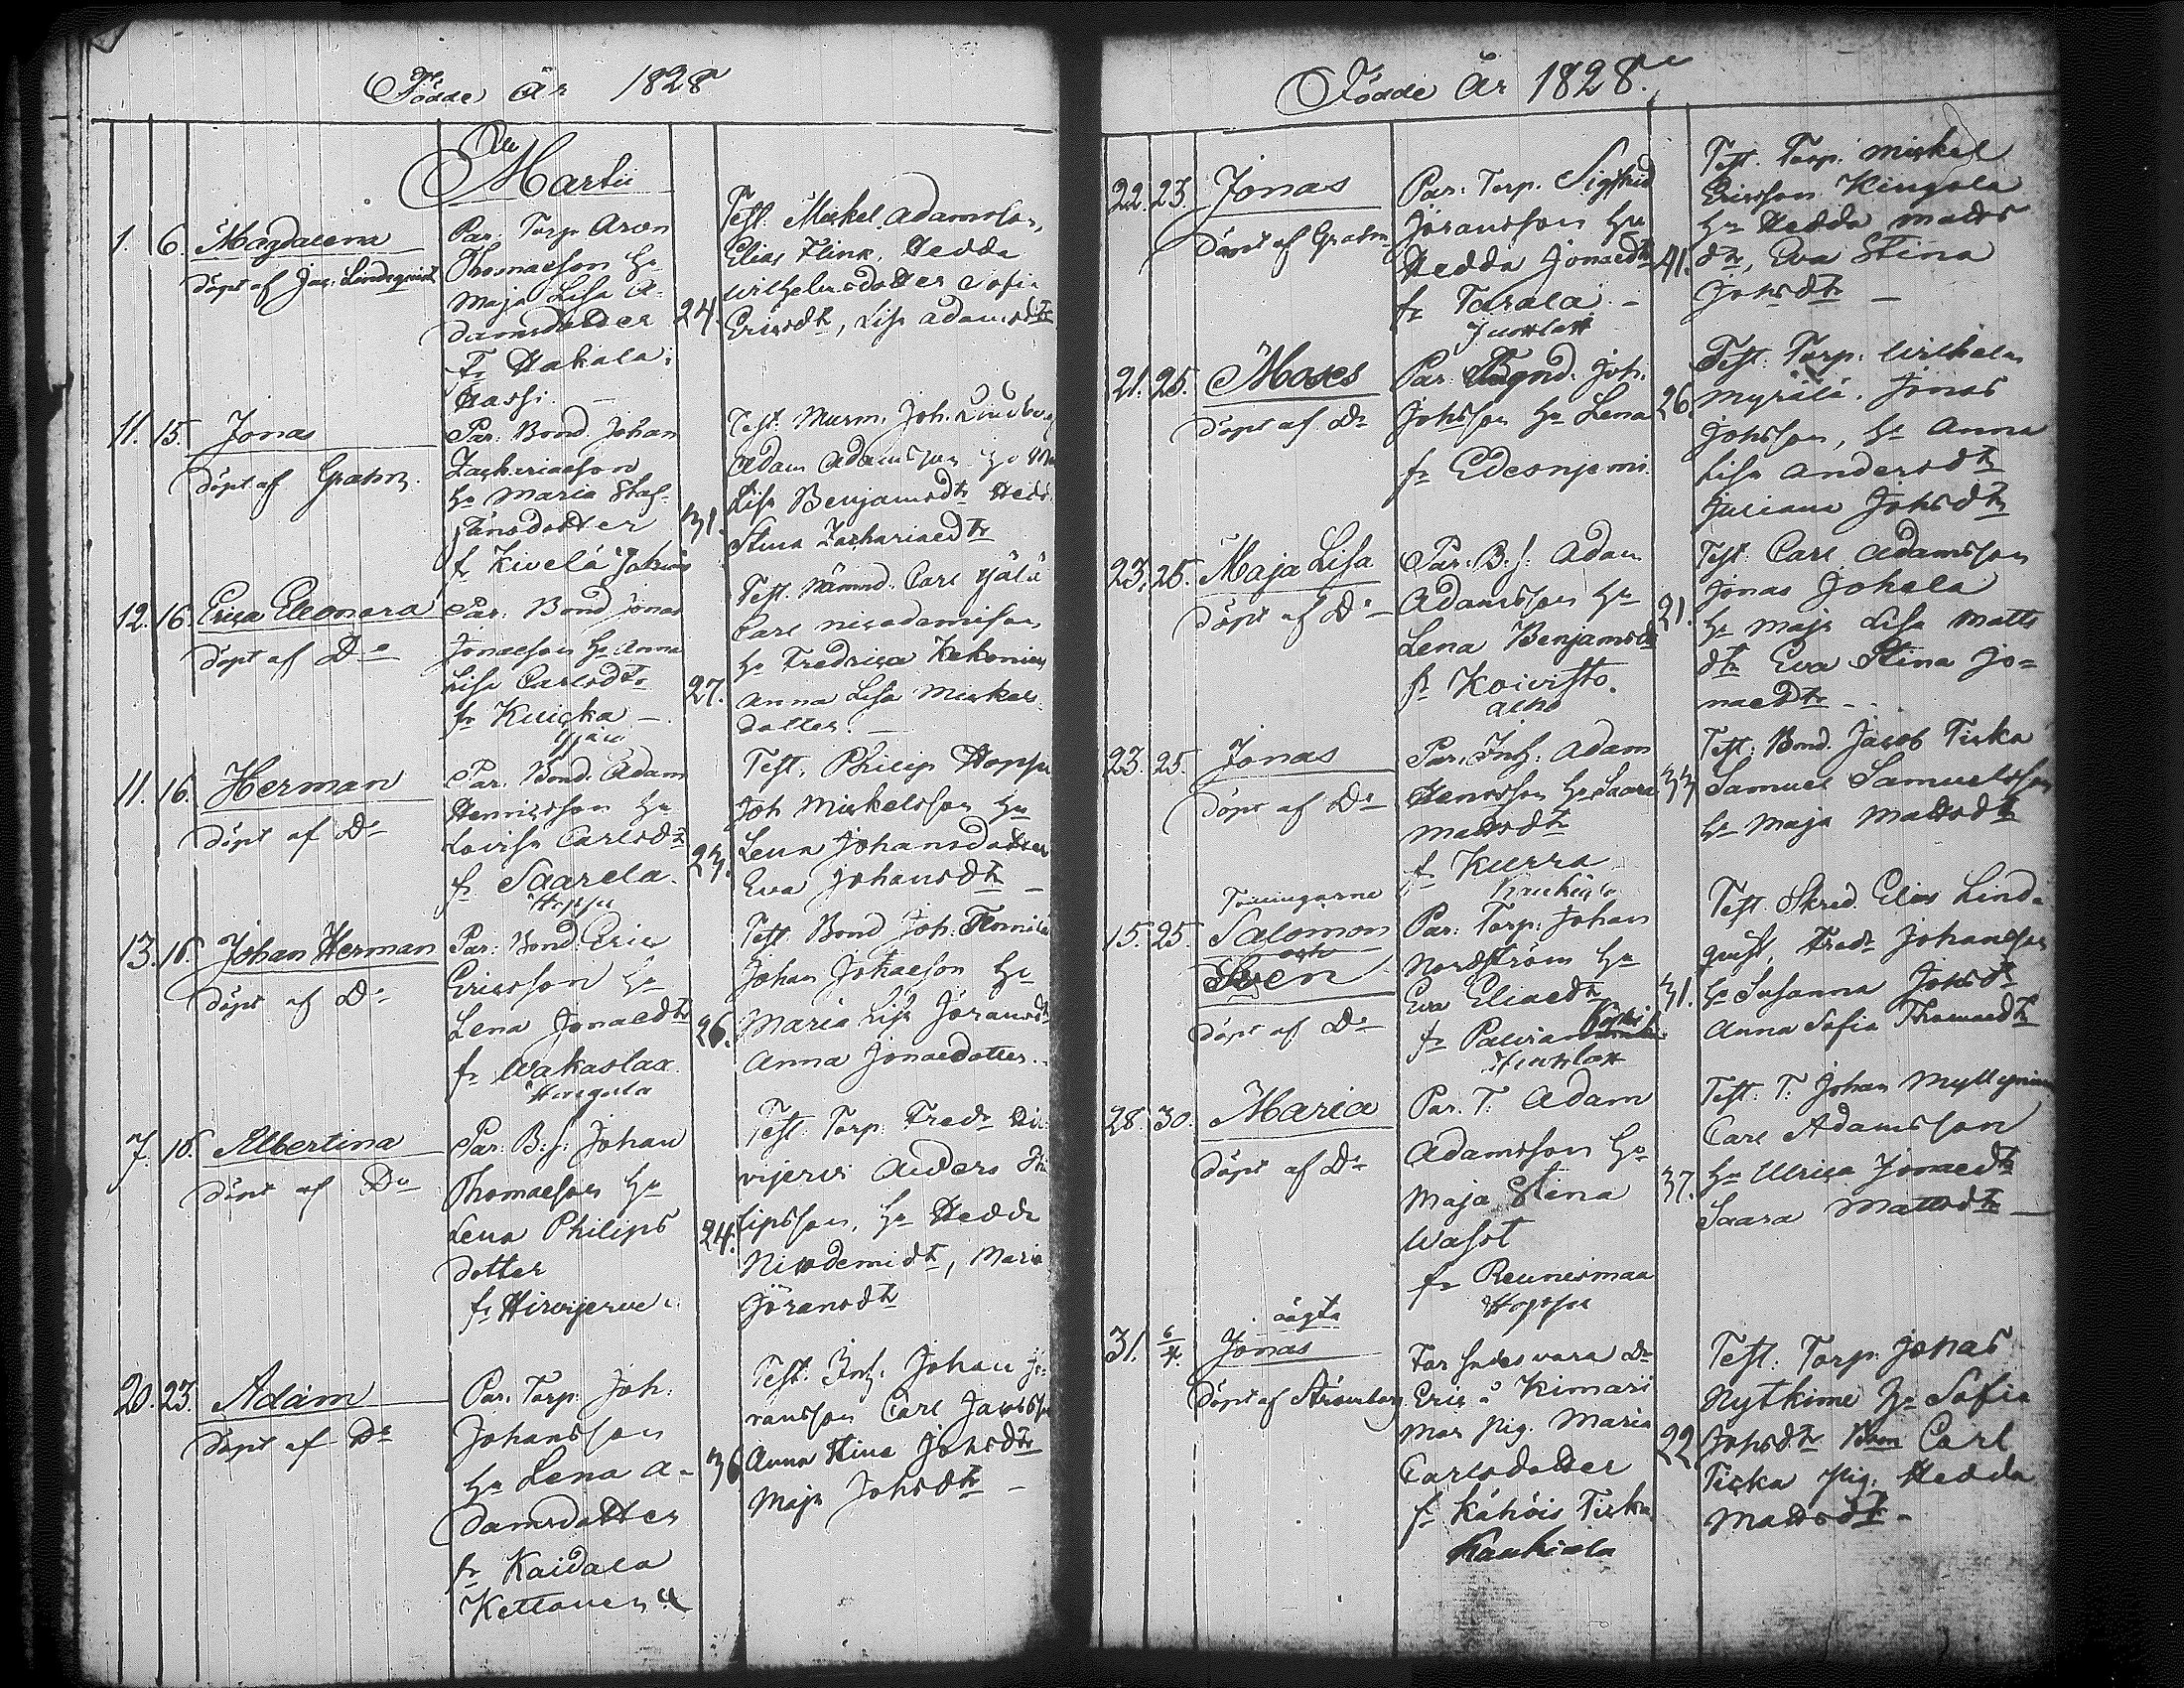 Födde År 1828
Martii
1. 6. Magdalena
Döpt af Jac: Lindequist
Par: Torp. Aron
Thomasson Hu
Maja Lisa A-
damsdotter
fr Hakala
24.
Test. Mickel Adamsson,
Elias Flink, Hedda
Wilhelmsdotter Sofia
Ericsdtr, Lisa Adamsdtr
11. 15. Jonas
Döpt af Grahn.
Par: Bond. Johan
Zachariasson
Hu Maria Staf-
fansdotter
fr Kivelä
31.
Test. Murm. Joh. Lindberg
Adam Adamsson Hu
Lisa Benjamsdtr Hedd.
Stina Zachariaedtr
12. 16. Erica Eleonora
Döpt af Do
Par: Bond Jonas
Jonasson Hu Anna
Lisa Carlsdtr
fr Kuicka
27.
Test. Nämnd. Carl Yjälä
Carl Nicodemisson
Hu Fredrica Kekonius
Anna Lisa Mickels-
dotter.
11. 16. Herman
Döpt af Do
Par: Bond. Adam
Henricsson Hu
Lovisa Carlsdtr
fr Saarela
Hoppu
23.
Test. Philip Hoppu
Joh Mickelsson Hu
Lena Johansdotter
Eva Johansdtr
13. 18. Johan Herman
Döpt af Do
Par: Bond. Eric
Ericsson Hu
Lena Jonaedtr
fr Wakaslax
Hingula
26.
Test. Bond Joh: Tommila
Johan Johansson Hu
Maria Lisa Göransdtr
Anna Jonaedotter.
7. 18. Albertina
Döpt af Do
Par: B.s. Johan
Thomasson Hu
Lena Philips
dotter
fr Hirvijerve
24.
Test. Torp. Fredr Hir
vijervi Anders Phi
lipsson, Hu Hedda
Nicodemidtr, Maria
Göransdtr
20. 23. Adam
Döpt af Do
Par. Torp. Joh:
Johansson
Hu Lena A-
damsdotter
fr Kaidala
Kettonen
36
Test. Inh. Johan Jö-
ransson Carl Jacobsson
Anna Stina Johsdtr
Maja Johsdtr
Födde År 1828.
22. 23. Jonas
Döpt af Grahn
Par: Torp. Sigfrid
Jöransson Hu
Hedda Jonaedtr
fr Tarala
41.
Test. Torp. Mickel
Ericsson Hingula
Hu Hedda Matts
dtr, Eva Stina
Johsdtr
21. 25. Moses
Döpt af Do
Par: Joh.
Johsson Hu Lena
fr Edesnjemi
26.
Test. Torp. Wilhelm
Myrälä, Jonas
Johsson, Hu Anna
Lisa Andersdtr
Juliana Johsdtr
23. 25. Maja Lisa
Döpt af Do
Par. B.s. Adam
Adamsson Hu
Lena Benjamsdtr
fr Koivisto.
Alho
21.
Test. Carl Adamsson
Jonas Johela
Hu Maja Lisa Matts
dtr Eva Stina Jo-
naedtr
23. 25. Jonas
Döpt af Do
Par. Inh. Adam
Henrsson Hu Saara
Mattsdtr
fr Kurra
33
Test. Bond. Jacob Ticka
Samuel Samuelsson
Hu Maja Mattsdtr
Tvillingarne
15. 25. Salomon
och
Sven
Döpt af Do
Par: Torp. Johan
Nordström Hu
Eva Eliaedtr
31.
Test. Skred. Elias Lind-
quist, Fredr Johansson
Hu Susanna Johsdtr
Anna Sofia Thomaedtr
28. 30. Maria
Döpt af Do
Par. T. Adam
Adamsson Hu
Maja Stina
Wast
fr Reunesmaa
Hoppu
37.
Test. T. Johan Myllyniemi
Carl Adamsson
Hu Ulrica Jonaedtr
Saara Mattsdtr
oägta
31. 6/4. Jonas
Döpt af Strömborg
Far sades vara Dr
Eric å Kimari
Mor pig. Maria
Carlsdotter
fr Kähöis Ticka
Kaukiala
22.
Test. Torp. Jonas
Nytkime Hu Sofia
Johsdtr Bon Carl
Ticka pig. Hedda
Mattsdtr